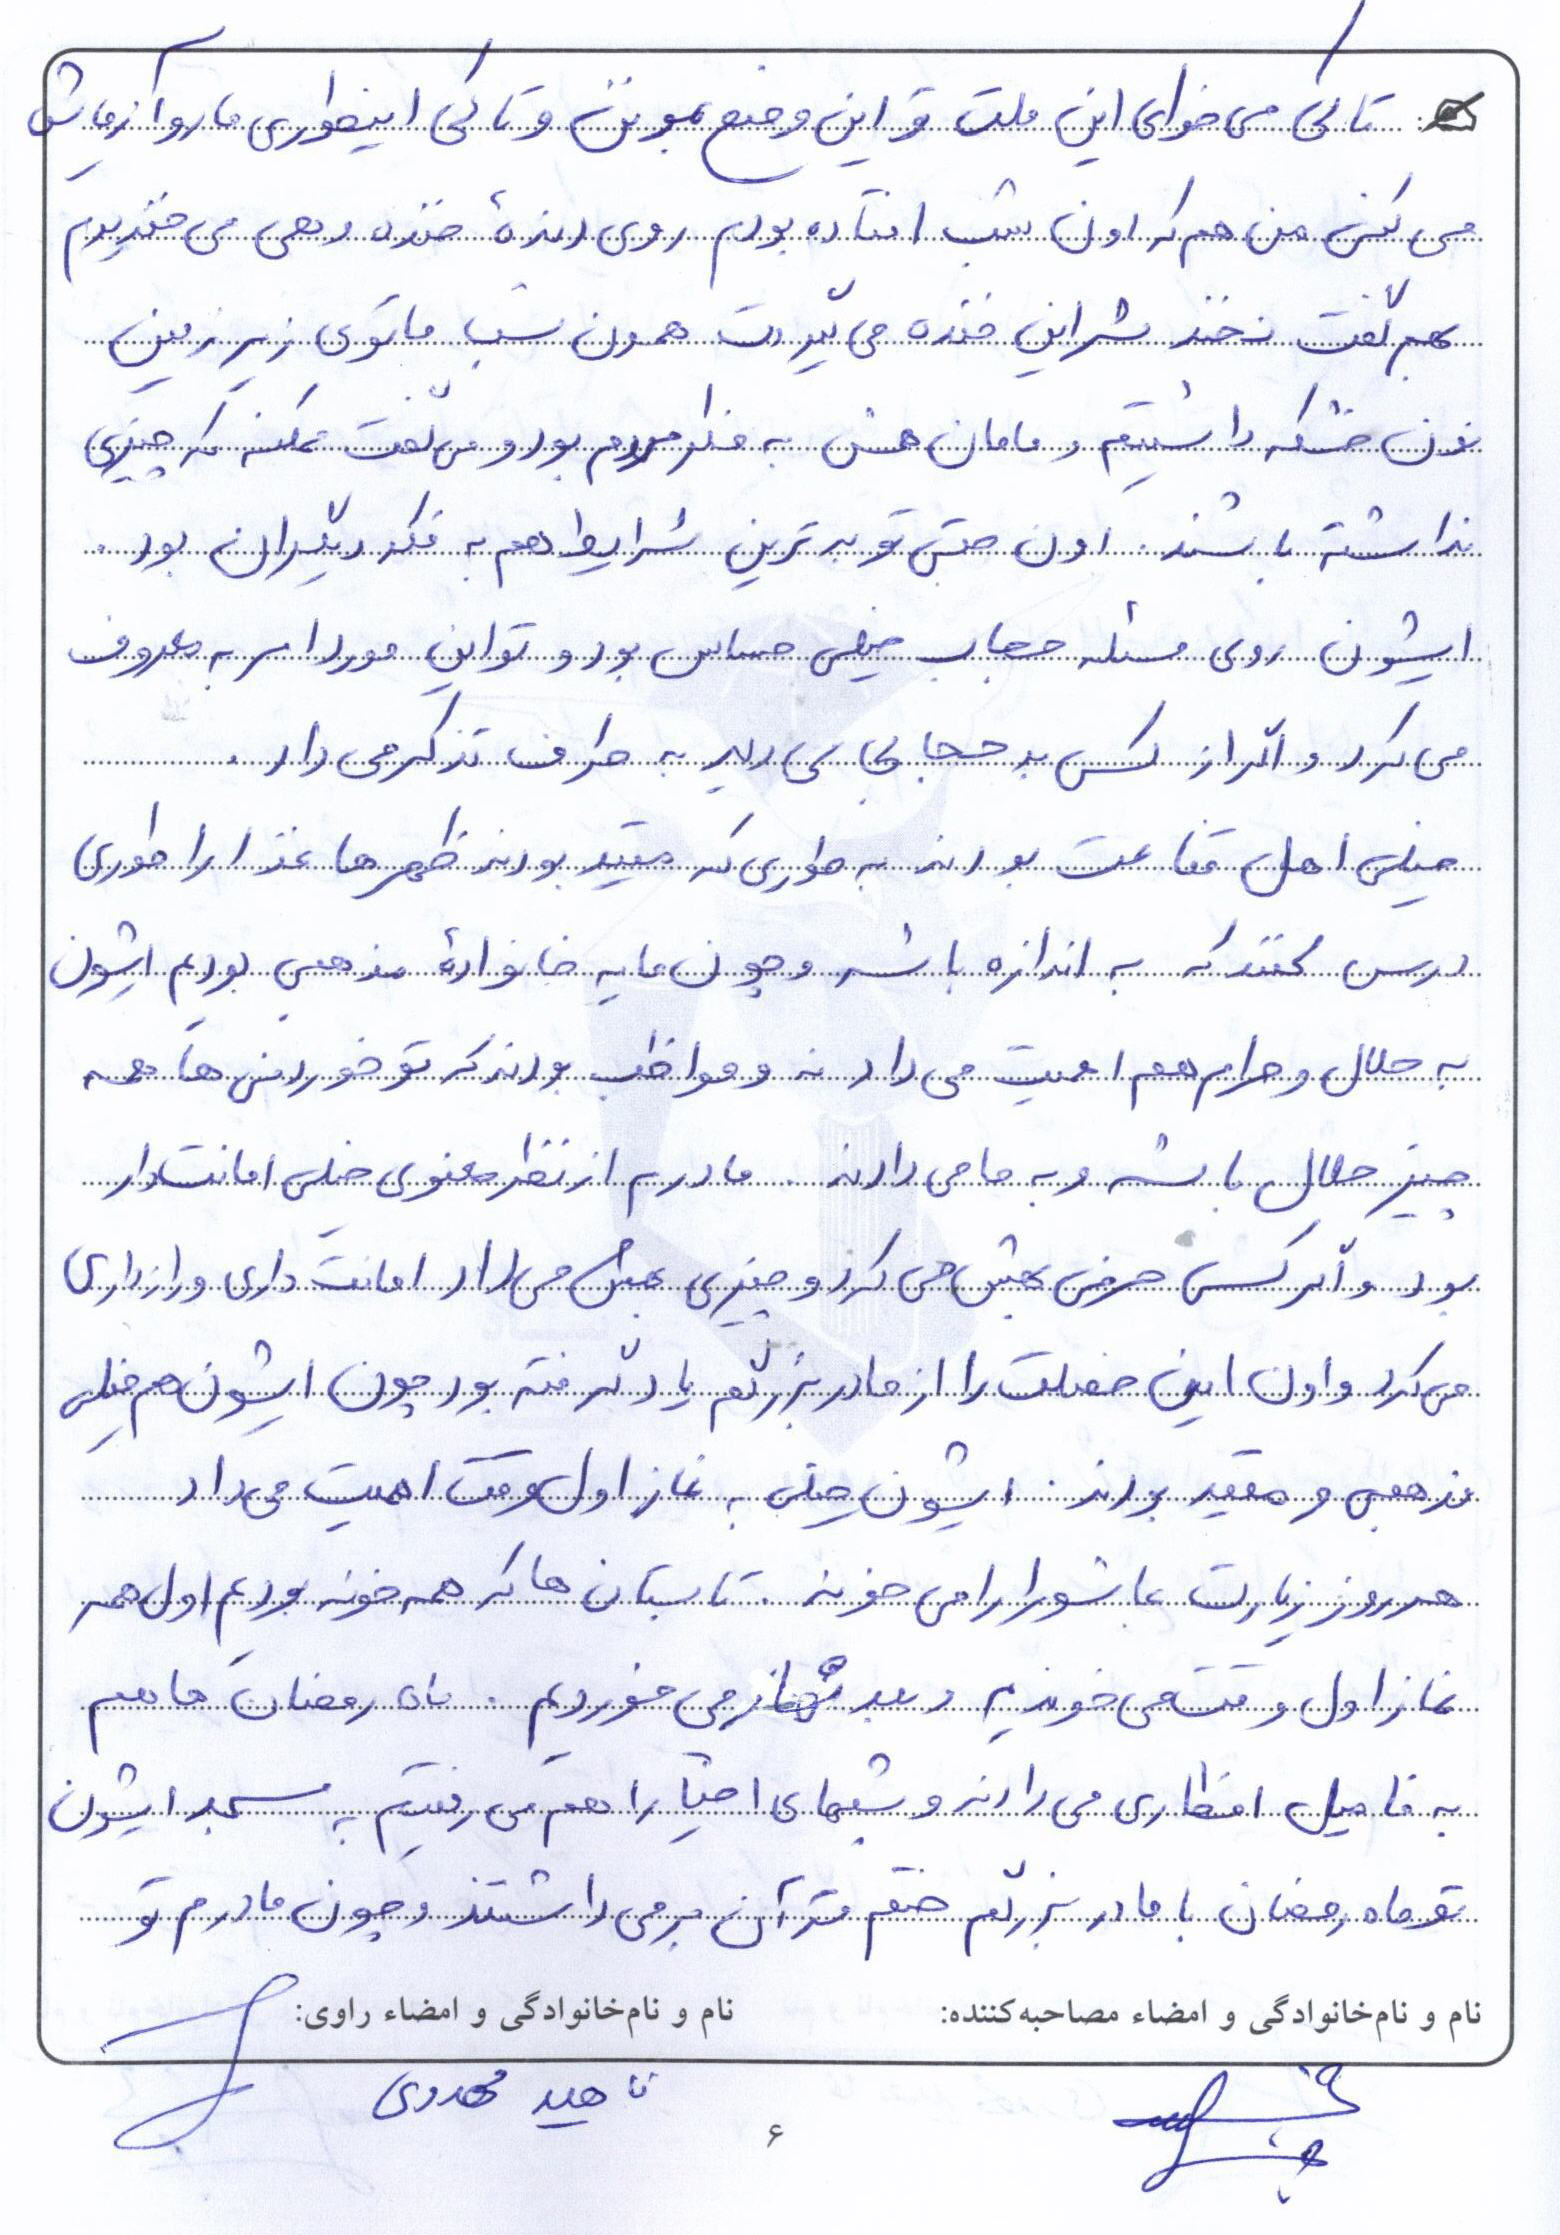 تا کی می خوای این ملت تو این وضع بمونن و تا کی اینطوری ما رو آزمایش
می کنی من هم که اون شب افتاده بودم روی دندهٔ خنده و هی می خندیدم
بهم گفت نخند شر این خنده می گیردت همون شب ما توی زیرزمین
نون خشکه داشتیم و مامان همش به فکر مردم بود و می گفت نکنه که چیزی
نداشته باشند. اون حتی تو بدترین شرایط هم به فکر دیگران بود.
ایشون روی مسئله حجاب خیلی حساس بود و تو این مورد امر به معروف
می کرد و اگر از کسی بدحجابی می دید به طرف تذکر می داد.
خیلی اهل قناعت بودند به طوری که مقید بودند ظهرها غذا را طوری
درس کنند که به اندازه باشه و چون ما یه خانوادهٔ مذهبی بودیم ایشون
به حلال و حرام هم اهمیت می دادند و مواظب بودند که تو خوردنی ها همه
چیز حلال باشه و به ما می دادند. مادرم از نظر معنوی خیلی امانت دار
بود و اگر کسی حرفی بهش می کرد و چیزی بهش می داد امانت داری و رازداری
می کرد و اون این خصلت را از مادربزرگم یاد گرفته بود چون ایشون هم خیلی
مذهبی و معتقد بودند. ایشون خیلی به نماز اول وقت اهمیت می داد
هر روز زیارت عاشورا را می خوند. تابستان ها که همه خونه بودیم اول همه
نماز اول وقت می خوندیم و بعد نهار می خوردیم. ماه رمضان ما هم
به فامیل افطاری می دادند و شبهای احیا را هم می رفتیم به مسجد ایشون
تو ماه رمضان با مادربزرگم ختم قرآن برمی داشتند و چون مادرم تو
نام و نام‌خانوادگی و امضاء مصاحبه‌کننده: نام و نام‌خانوادگی و امضاء راوی:
ناهید مهدوی
۶